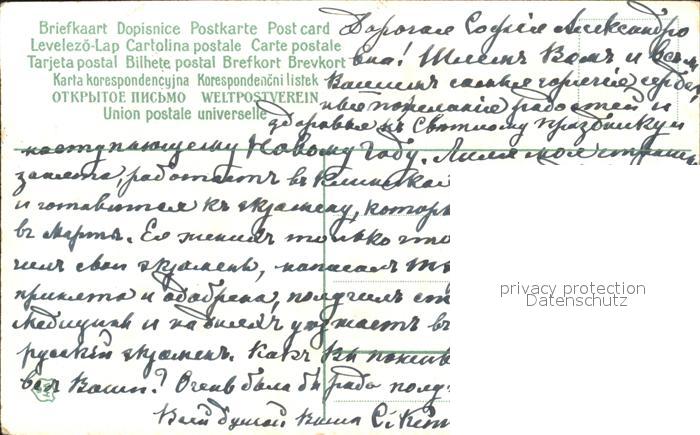 Briefkaart Dopisnice Postkarte Post card
Levelező-Lap Cartolina postale Carte postale
Tarjeta postal Bilhete postal Brefkort Brevkort
Karta korespondencyjna Korespondenční listek
ОТКРЫТОЕ ПИСЬМО WELTPOSTVEREIN
Union postale universelle
Дорогая Софія Александро
вна! Шлемъ Вамъ и всѣмъ
Вашимъ самыя горячія сердеч
ныя пожеланія радостей и
здоровья къ Святому празднику и
наступающему Новому Году. Лиля моя страш
занята, работаетъ въ Клинской
и готовится къ экзамену, котор
въ Мартѣ. Ея женихъ только что
чилъ свои экзамены, написалъ
принята и одобрена, получилъ ст
Медицины и на дняхъ уѣзжаетъ въ
русскій экзаменъ. Какъ Вы пожив
всѣ Ваши? Очень была бы рада полу
Всей душой Ваша С.
privacy protection
Datenschutz